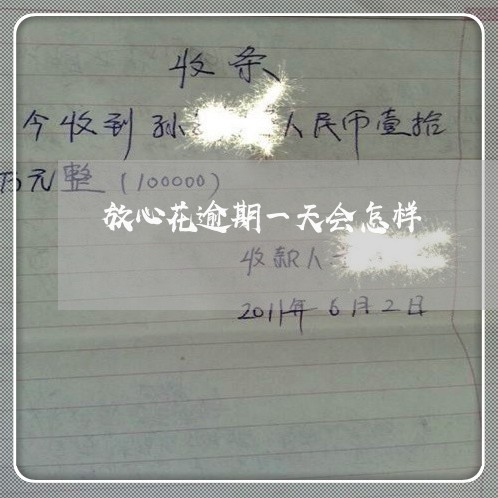 收条
今收到孙 人民币壹拾
万元整(100000)
放心花逾期一天会怎样
收款人
2011年6月2日